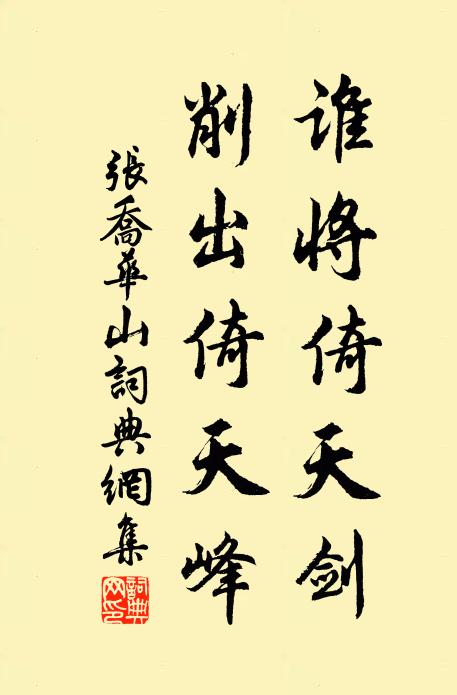 谁将倚天剑
削出倚天峰
張喬華山詞典網集
詞典网印